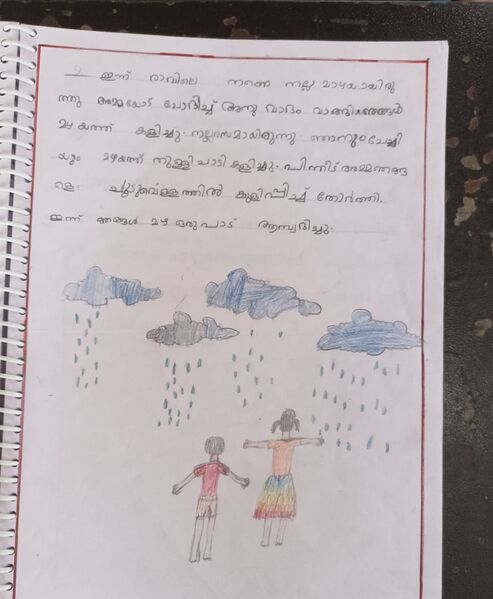 2 ഇന്ന് രാവിലെ നന്നെ നല്ല മാഴയായിരു
ത്തു അമ്മയോട ചോദിച്ച് അനു വാദം വാങ്ങിഞങ്ങൾ
മഴ യത്ത് കളിച്ചു. നല്ലരസമായിരുന്നു ഞാനും ചേച്ചി
യും മഴയത്ത് തുള്ളി ചാടി കളിച്ചു. പിന്നീട് അമ്മ ഞങ്ങ
ളെ ചൂടുവെള്ളത്തിൽ കുളിപ്പിച്ച് തോർത്തി.
ഇന്ന് ഞങ്ങൾ മഴ ഒരുപാട് ആസ്വദിച്ചു.